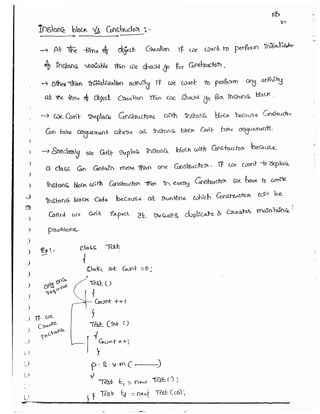 Instance block Vs Constructor :-
→ At the time of object Creation if we want to perform Initialization
of Instance variable then we should go for Constructor.
→ Other than Initialization activity if we want to perform any activity
at the time of Object Creation then we should go for Instance block.
→ we Can't replace Constructor with Instance block because Constructor
Can take arguement where as Instance block Can't take arguements.
→ Similarly we Can't replace Instance block with Constructor because
a class Can Contain more than one Constructor. If we want to replace
Instance block with Constructor then in every Constructor we have to write
Instance block Code because at runtime which Constructor will be
Called we Can't Expect. It results duplicate & Creates maintaince
problems.
Ex 1.
class Test
{
static int Count = 0;
Test ()
{
Count ++;
}
Test (int i)
{
Count ++;
}
p. s. v. m (——)
{
Test t1 = new Test();
Test t2 = new Test(10);